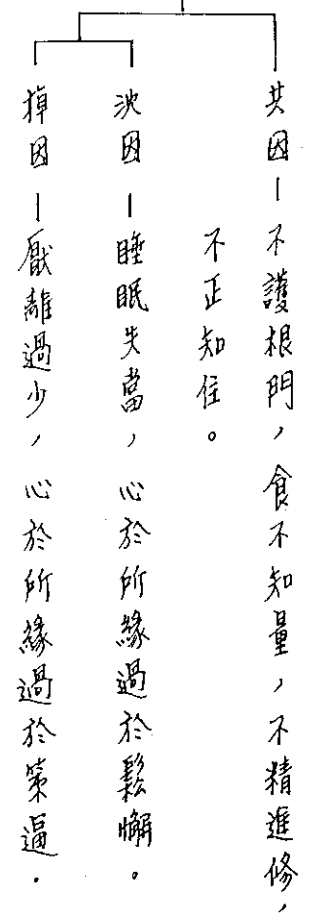 共因—不護根門,食不知量,不精進修,
不正知住。
沈因—睡眠失當,心於所緣過於鬆懈。
掉因—厭離過少,心於所緣過於策逼.